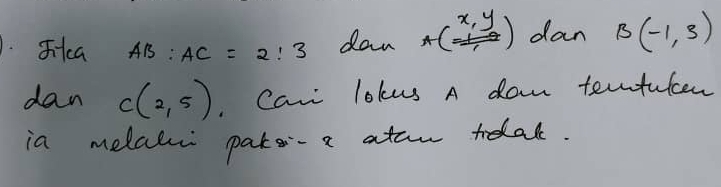 ). Jika AB : AC = 2 : 3 dan A(x, y) dan B(-1, 3)
dan C(2, 5). Cari lokus A dan tentukan
ia melalui paksi-x atau tidak.